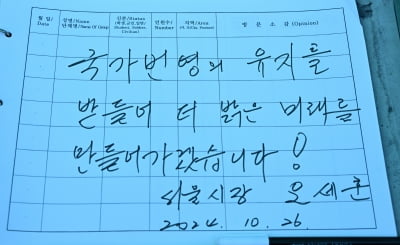 월 일/ 성명/Name 신분/Status 인원수/ 지역/Area 방 문 소 감 (Opinion)
Date 단체명/Name Of Group Number
국가번영의 유지를
받들어 더 밝은 미래를
만들어가겠습니다!
서울시장 오세훈
2024. 10. 26.